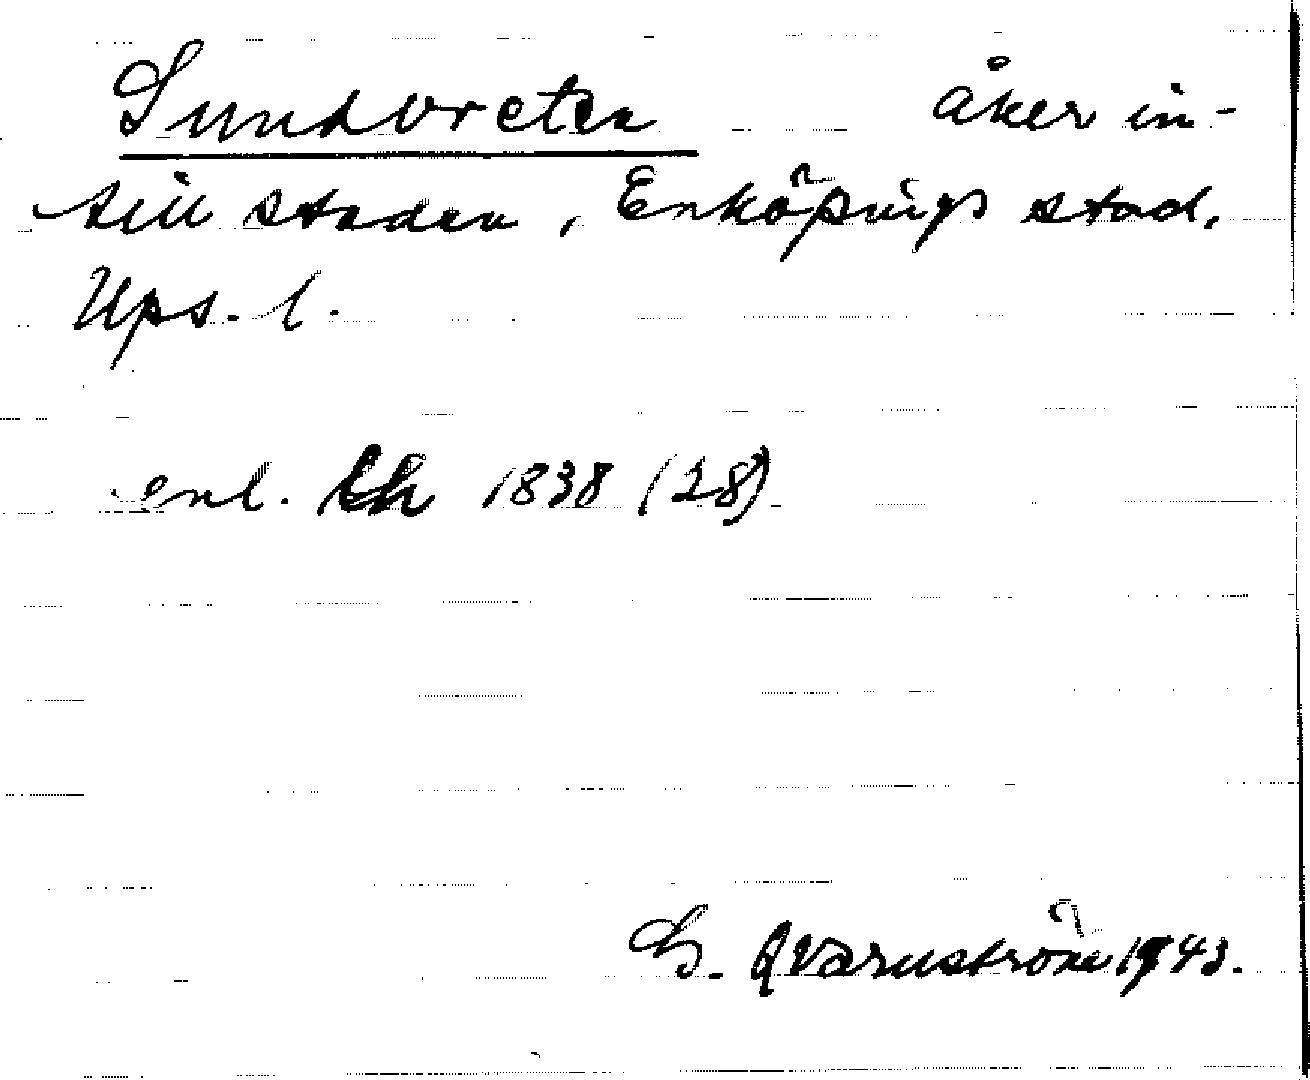 Sundvreten åker in-
till staden, Enköpings stad,
Ups. l.
enl. lh 1838 (28)
G. Qvarnström 1943.